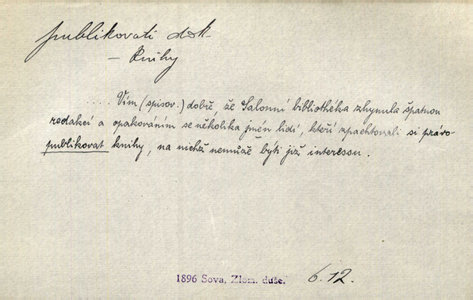 publikovati dok.
– knihy
..... Vím (spisov.) dobře, že Salonní bibliothéka zhynula špatnou
redakcí a opakováním se několika jmén lidí, kteří zpachtovali si právo
publikovat knihy, na nichž nemůže býti již interessu.
1896 Sova, Zlom. duše. 6.12.